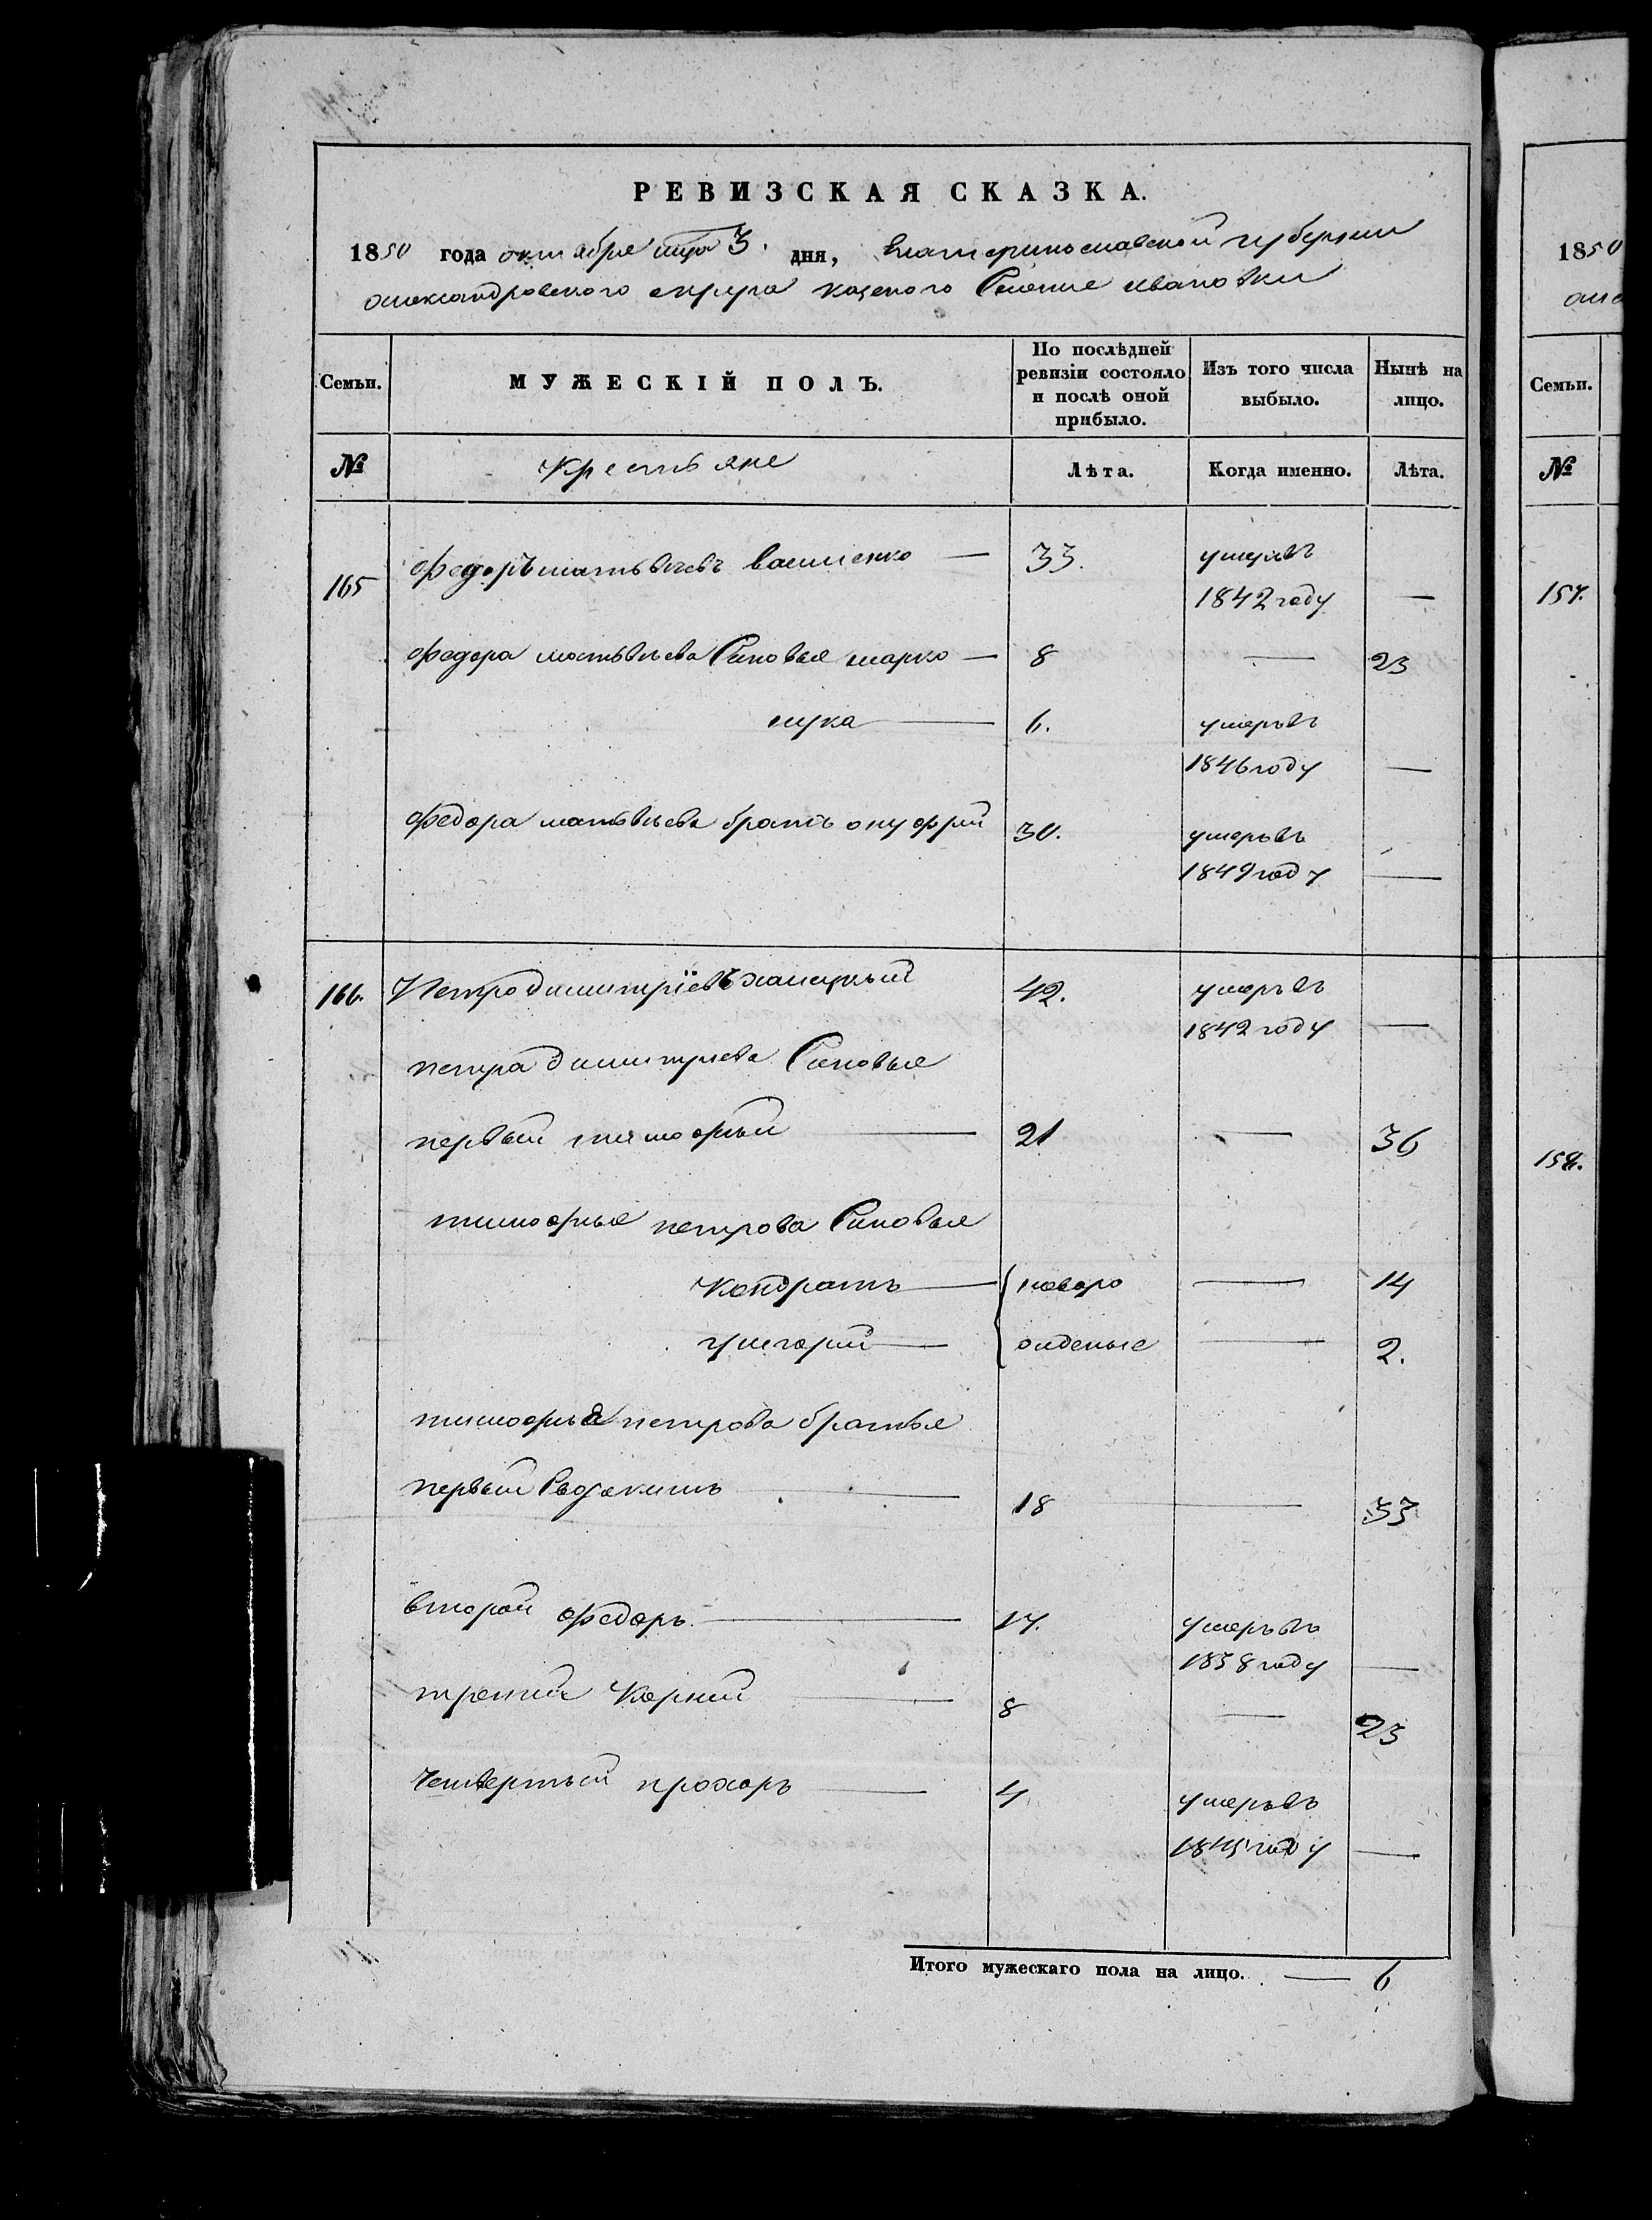 РЕВИЗСКАЯ СКАЗКА.
1850 года октября мца 3. дня, Екатеринославской губернии
александровского округа казеного Селение ивановки
Семьи. МУЖЕСКІЙ ПОЛЪ. По послѣдней ревизіи состояло и послѣ оной прибыло. Изъ того числа выбыло. Нынѣ на лицо.
№ Крестьяне Лѣта. Когда именно. Лѣта.
165 Федоръ матвѣевъ 33. умеръвъ
1842 году —
федора матвѣева Синовья марко — 8 — 23
лука — 6. умеръвъ
1846 году —
Федора матвѣева братъ онуфрий 30. умеръвъ
1849 году —
166. Петро димитріевъ 42. умеръвъ
1842 году —
петра димитриева Синовья
первый тимофый — 21 — 36
тимофыя петрова Синовья
Кондратъ — { новоро — 14
григорий — жденые — 2.
тимофыя петрова братья
первый — 18 — 33
второй Федоръ — 17. умеръвъ
1838 году —
третий Корний — 8 — 23
Четвертый прохоръ — 4 умеръвъ
1845 году —
Итого мужескаго пола на лицо. — 6
1850
Семьи.
№
157.
158.